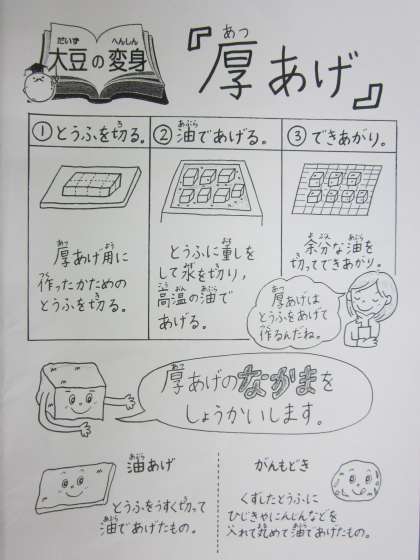 大豆の変身
『厚あげ』
①とうふを切る。
厚あげ用に
作ったかための
とうふを切る。
②油であげる。
とうふに重しを
して水を切り,
高温の油で
あげる。
③できあがり。
余分な油を
切ってできあがり。
厚あげは
とうふをあげて
作るんだね。
厚あげのなかまを
しょうかいします。
油あげ
とうふをうすく切って
油であげたもの。
がんもどき
くずしたとうふに
ひじきやにんじんなどを
入れて丸めて油であげたもの。